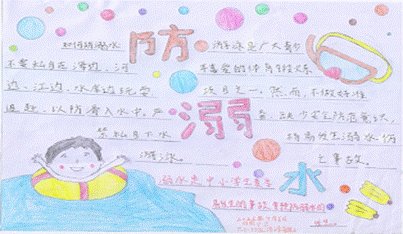 防溺水
如何防溺水
不要私自在海边、河
边、江边、水库边玩耍
追赶,以防滑入水中。严
禁私自下水
游泳。
游泳是广大青少
年喜爱的体育锻炼
项目之一。然而,不做好准
备,缺少安全防范意识,
极易发生溺水伤
亡事故。
溺水是中小学生